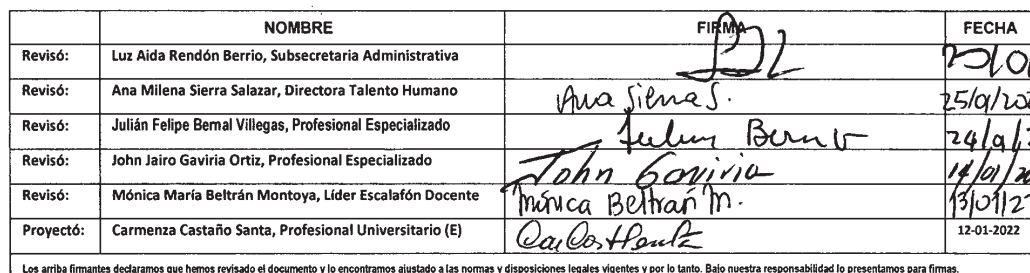 NOMBRE FIRMA FECHA
Revisó: Luz Aida Rendón Berrio, Subsecretaria Administrativa
Revisó: Ana Milena Sierra Salazar, Directora Talento Humano Ana Sierra S.
Revisó: Julián Felipe Bernal Villegas, Profesional Especializado Julian Bernal V
Revisó: John Jairo Gaviria Ortiz, Profesional Especializado John Gaviria
Revisó: Mónica María Beltrán Montoya, Líder Escalafón Docente Mónica Beltrán M.
Proyectó: Carmenza Castaño Santa, Profesional Universitario (E) 12-01-2022
Los arriba firmantes declaramos que hemos revisado el documento y lo encontramos ajustado a las normas y disposiciones legales vigentes y por lo tanto. Bajo nuestra responsabilidad lo presentamos para firmas.